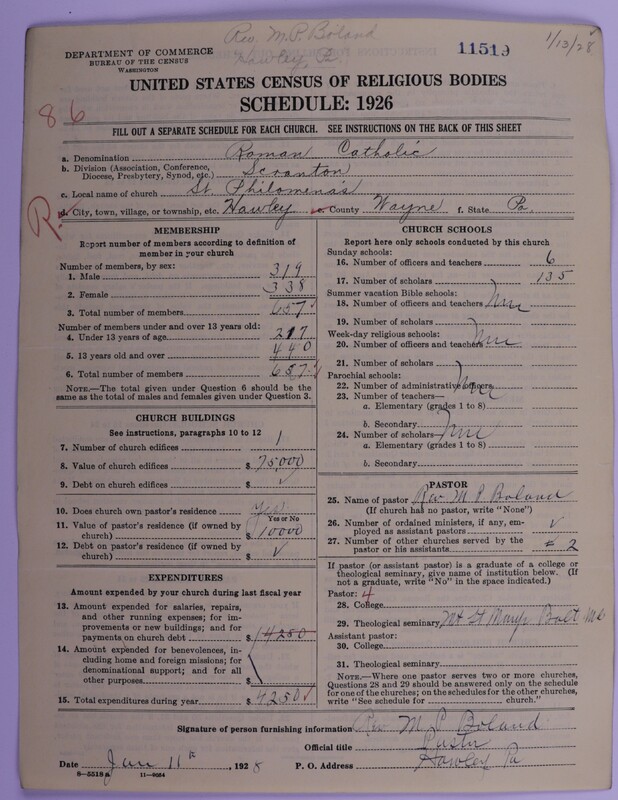 Rev. M.P. Boland
Hawley, Pa.
11519
1/13/28
DEPARTMENT OF COMMERCE
BUREAU OF THE CENSUS
WASHINGTON
UNITED STATES CENSUS OF RELIGIOUS BODIES
SCHEDULE: 1926
86
FILL OUT A SEPARATE SCHEDULE FOR EACH CHURCH. SEE INSTRUCTIONS ON THE BACK OF THIS SHEET
a. Denomination Roman Catholic
b. Division (Association, Conference, Diocese, Presbytery, Synod, etc.) Scranton
c. Local name of church St. Philomenas
R.
d. City, town, village, or township, etc. Hawley e. County Wayne f. State Pa.
MEMBERSHIP
Report number of members according to definition of
member in your church
Number of members, by sex:
1. Male 319
2. Female 338
3. Total number of members 657
Number of members under and over 13 years old:
4. Under 13 years of age 217
5. 13 years old and over 440
6. Total number of members 657
NOTE.—The total given under Question 6 should be
same as the total of males and females given under Question 3.
CHURCH BUILDINGS
See instructions, paragraphs 10 to 12
7. Number of church edifices 1
8. Value of church edifices $ 75,000
9. Debt on church edifices $
10. Does church own pastor's residence Yes
Yes or No
11. Value of pastor's residence (if owned by
church) $ 10000
12. Debt on pastor's residence (if owned by
church) $ ✓
EXPENDITURES
Amount expended by your church during last fiscal year
13. Amount expended for salaries, repairs,
and other running expenses; for im-
provements or new buildings; and for
payments on church debt $ 4250
14. Amount expended for benevolences, in-
cluding home and foreign missions; for
denominational support; and for all
other purposes $
15. Total expenditures during year $ 4250
CHURCH SCHOOLS
Report here only schools conducted by this church
Sunday schools:
16. Number of officers and teachers 6
17. Number of scholars 135
Summer vacation Bible schools:
18. Number of officers and teachers
19. Number of scholars
Week-day religious schools:
20. Number of officers and teachers
21. Number of scholars
Parochial schools:
22. Number of administrative officers
23. Number of teachers—
a. Elementary (grades 1 to 8)
b. Secondary
24. Number of scholars—
a. Elementary (grades 1 to 8)
b. Secondary
PASTOR
25. Name of pastor Rev. M P Boland
(If church has no pastor, write "None")
26. Number of ordained ministers, if any, em-
ployed as assistant pastors ✓
27. Number of other churches served by the
pastor or his assistants 2
If pastor (or assistant pastor) is a graduate of a college or
theological seminary, give name of institution below. (If
not a graduate, write "No" in the space indicated.)
Pastor: 4
28. College
29. Theological seminary Mt St Marys Balt Md
Assistant pastor:
30. College
31. Theological seminary
NOTE.—Where one pastor serves two or more churches,
Questions 28 and 29 should be answered only on the schedule
for one of the churches; on the schedules for the other churches,
write "See schedule for church."
Signature of person furnishing information Rev M P Boland
Official title Pastor
Date Jan 11th, 1928 P. O. Address Hawley Pa
8—5518a 11—9054